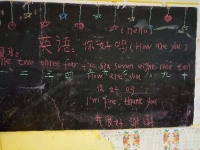 (Hello)
英语: 你好吗 (How are you)
two three four five six seven eight nine ten
二 三 四 九 十
How are you
很好
I'm fine, thank you
我很好 谢谢